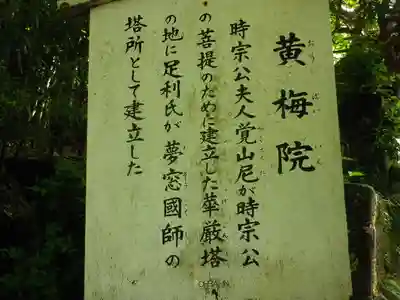 黄梅院
時宗公夫人覚山尼が時宗公
の菩提のために建立した華厳塔
の地に足利氏が夢窓國師の
塔所として建立した